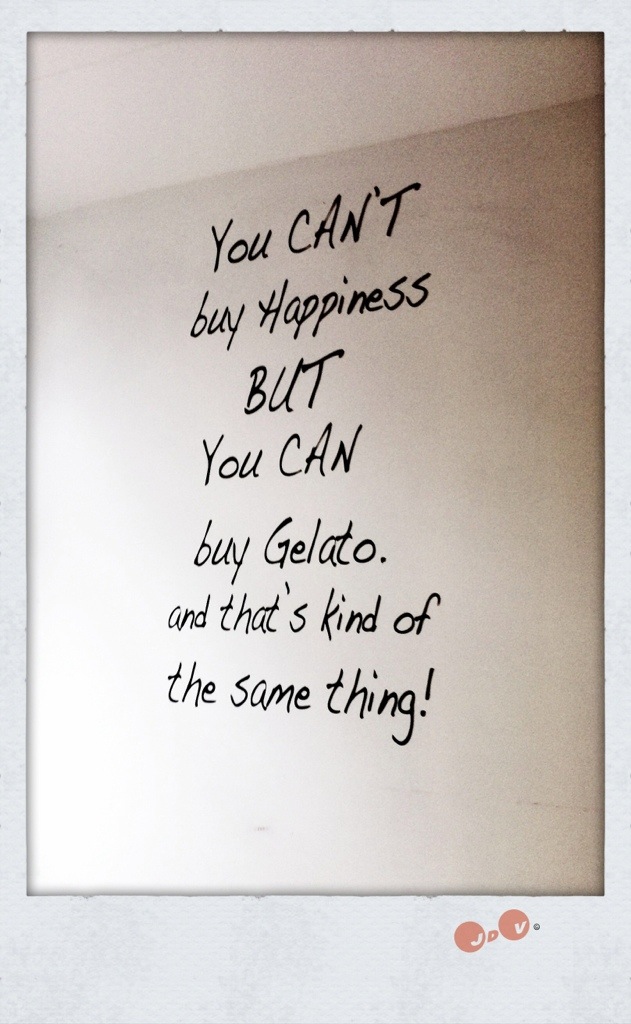 You CAN'T
buy Happiness
BUT
You CAN
buy Gelato.
and that's kind of
the same thing!
JDV©